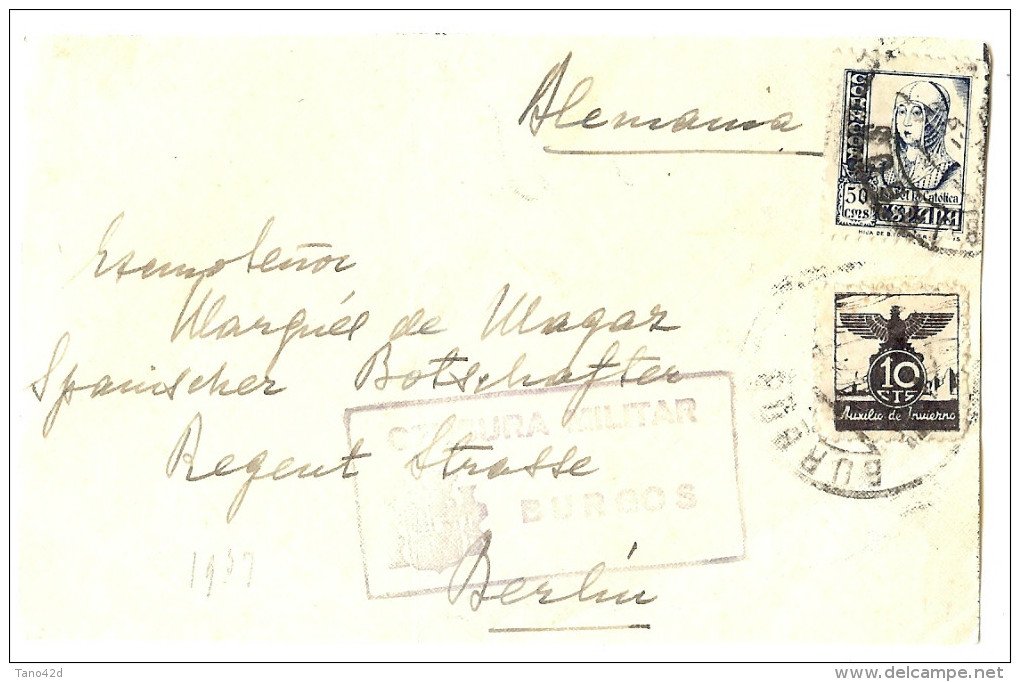 Alemania
CORREOS
50
CTMS
Isabel la Católica
ESPAÑA
Marqués de Magaz
Spanischer Botschafter
Regent Strasse
Berlin
CENSURA MILITAR
BURGOS
10
CTS
Auxilio de Invierno
BURGOS
1937
Tano42d
www.delcampe.net